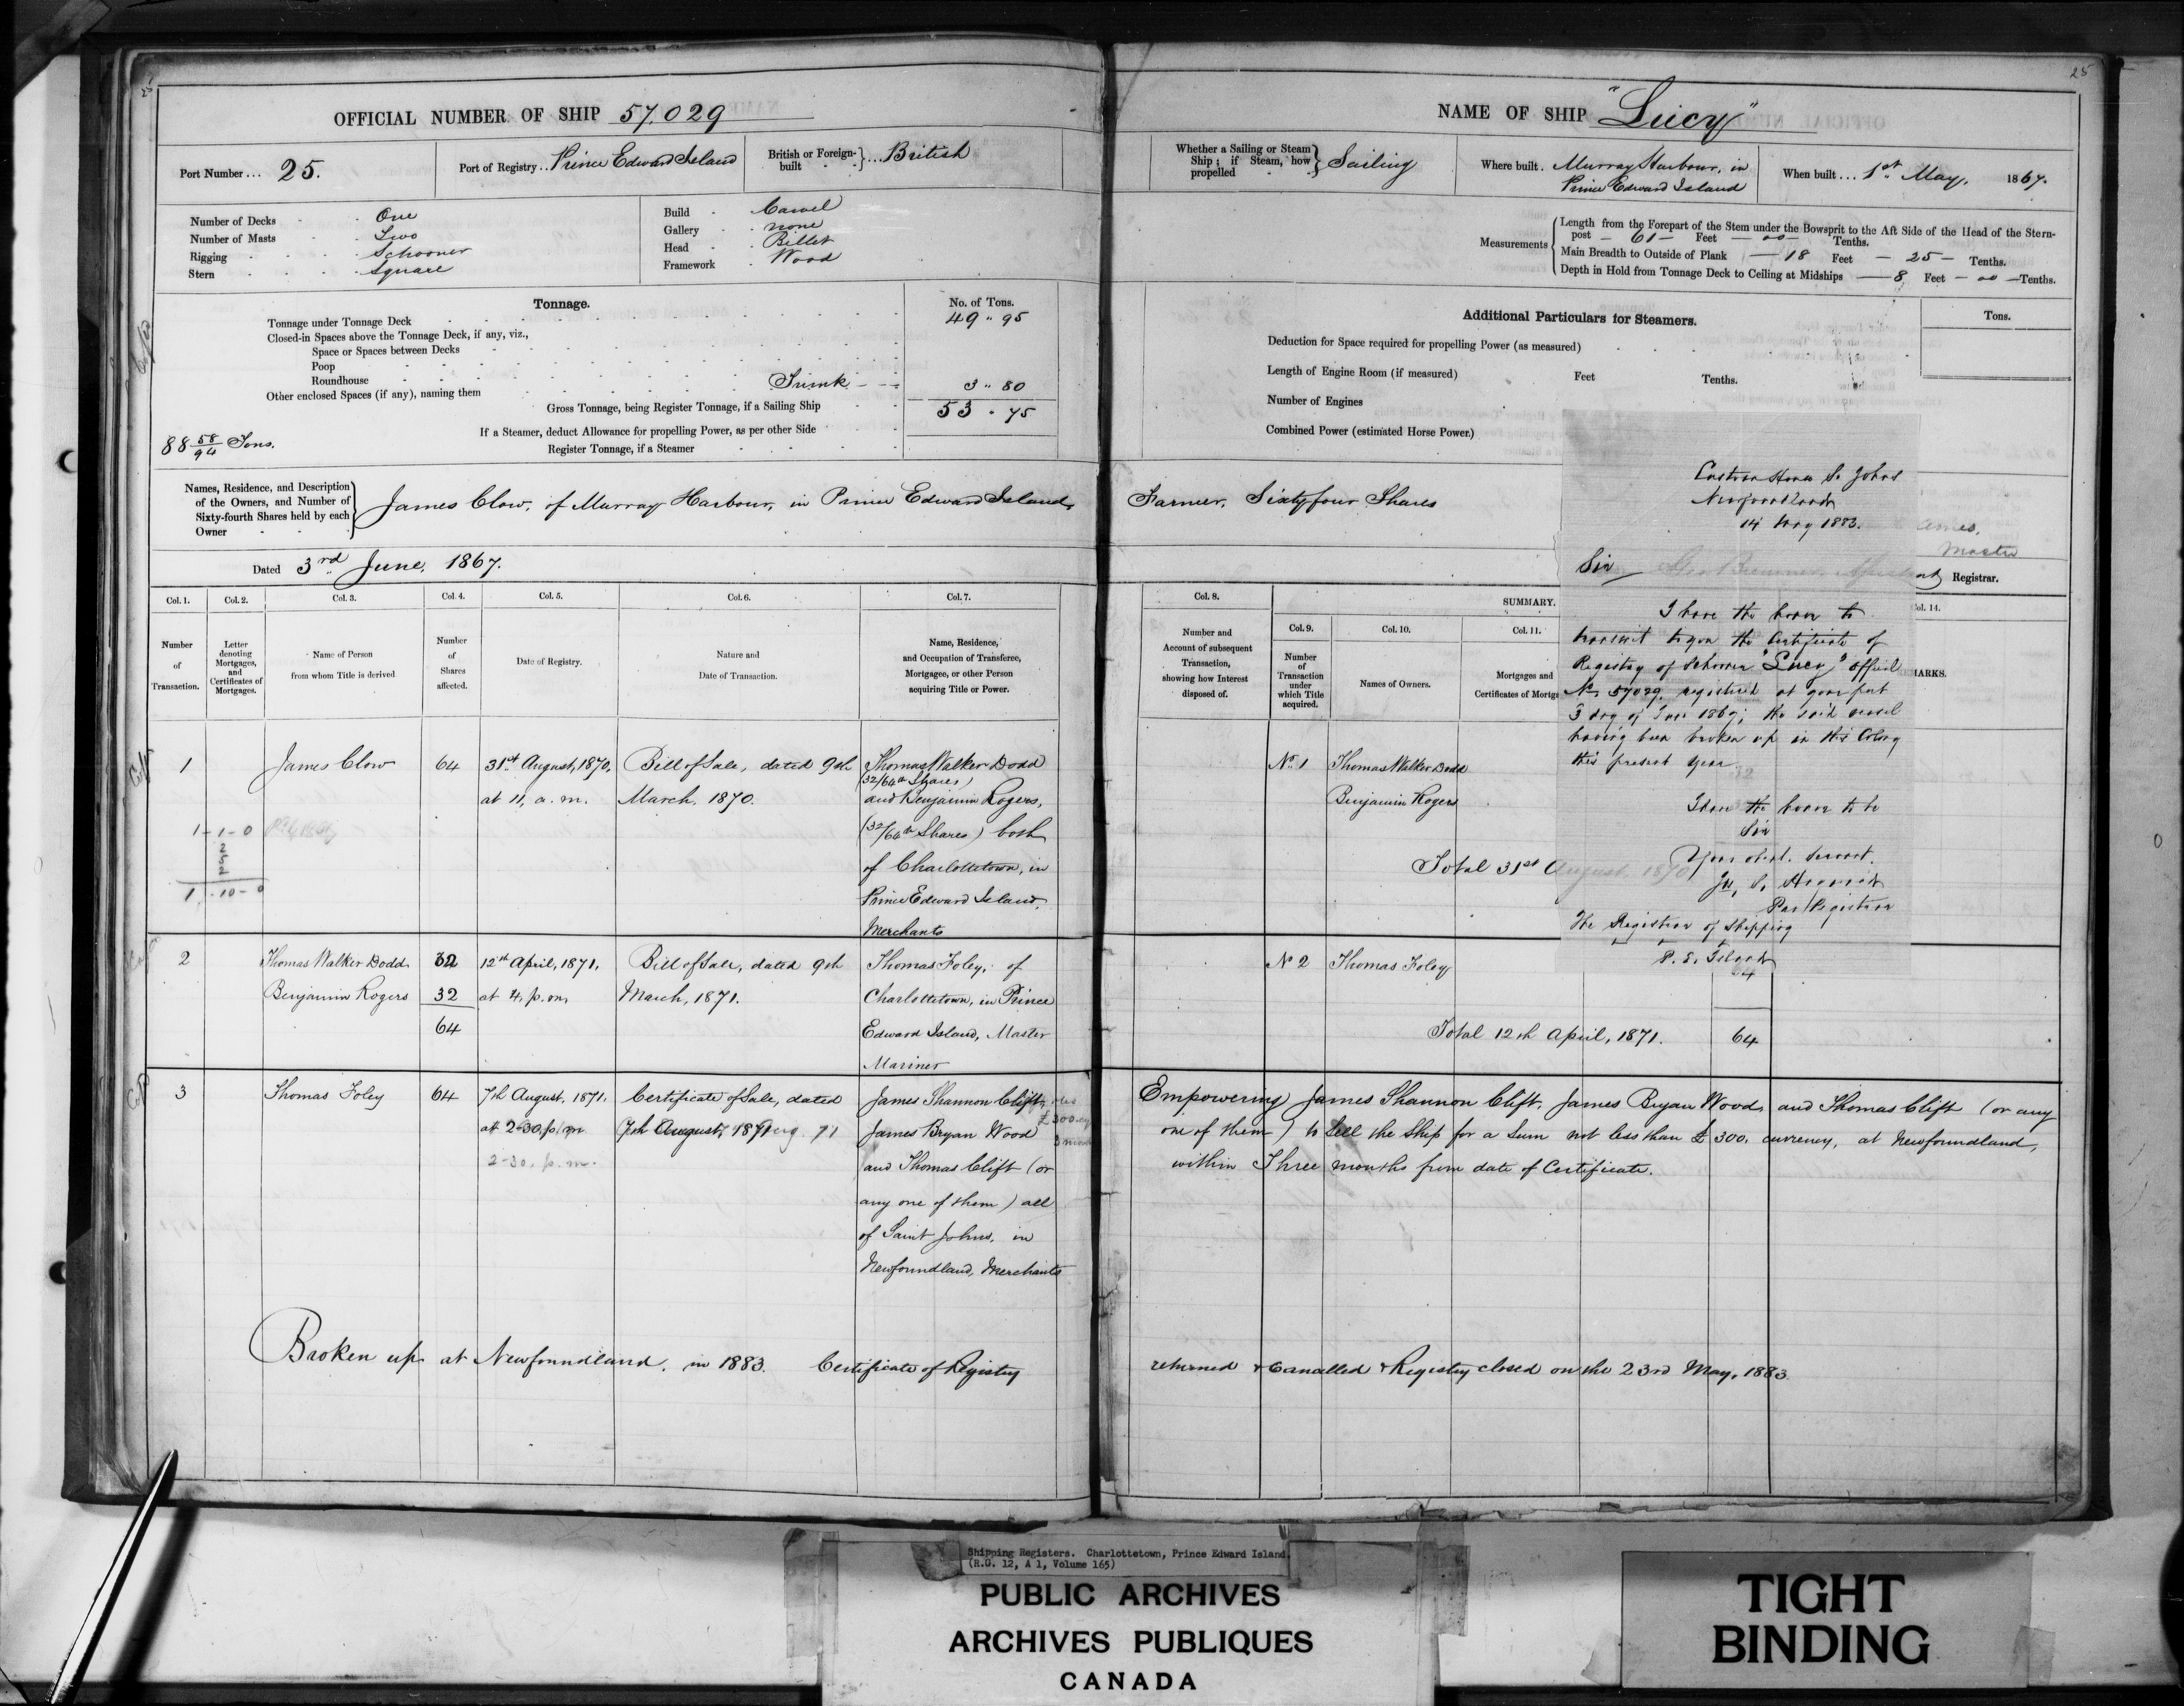 OFFICIAL NUMBER OF SHIP 57.029
Port Number ... 25.
Port of Registry .. Prince Edward Island
British or Foreign-built } ... British
Number of Decks One
Number of Masts Two
Rigging Schooner
Stern Square
Build Carvel
Gallery none
Head Billet
Framework Wood
Tonnage.
No. of Tons.
Tonnage under Tonnage Deck 49 " 95
Closed-in Spaces above the Tonnage Deck, if any, viz.,
Space or Spaces between Decks
Poop
Roundhouse
Other enclosed Spaces (if any), naming them Trunk 3 " 80
Gross Tonnage, being Register Tonnage, if a Sailing Ship 53 . 75
If a Steamer, deduct Allowance for propelling Power, as per other Side
88 58/94 Tons.
Register Tonnage, if a Steamer
Names, Residence, and Description
of the Owners, and Number of
Sixty-fourth Shares held by each
Owner
James Clow, of Murray Harbour, in Prince Edward Island,
Dated 3rd June, 1867.
Col. 1. Col. 2. Col. 3. Col. 4. Col. 5. Col. 6. Col. 7.
Number of Transaction.
Letter denoting Mortgages, and Certificates of Mortgages.
Name of Person from whom Title is derived
Number of Shares affected.
Date of Registry.
Nature and Date of Transaction.
Name, Residence, and Occupation of Transferee, Mortgagee, or other Person acquiring Title or Power.
1 James Clow 64 31st August, 1870, Bill of Sale, dated 9th Thomas Walker Dodd
(32/64th Shares)
at 11, a.m. March, 1870. and Benjamin Rogers,
1-1-0
(32/64th Shares) both
2
5
2
of Charlottetown, in
1-10-0
Prince Edward Island,
Merchants
2 Thomas Walker Dodd 32 12th April, 1871, Bill of Sale, dated 9th Thomas Foley, of
Benjamin Rogers 32 at 4, p.m. March, 1871. Charlottetown, in Prince
64 Edward Island, Master
Mariner
3 Thomas Foley 64 7th August, 1871. Certificate of Sale, dated James Shannon Clift,
at 2-30, p.m. 7th August, 1871 James Bryan Wood
2-30, p.m. and Thomas Clift (or
any one of them) all
of Saint Johns, in
Newfoundland, Merchants
Broken up at Newfoundland, in 1883. Certificate of Registry
25
NAME OF SHIP "Lucy"
Whether a Sailing or Steam Ship; if Steam, how propelled } Sailing
Where built . Murray Harbour, in
Prince Edward Island
When built ... 1st May, 1867.
Measurements
Length from the Forepart of the Stem under the Bowsprit to the Aft Side of the Head of the Stern-
post – 61 – Feet – 00 – Tenths.
Main Breadth to Outside of Plank – 18 Feet – 25 – Tenths.
Depth in Hold from Tonnage Deck to Ceiling at Midships – 8 Feet – 00 – Tenths.
Additional Particulars for Steamers.
Tons.
Deduction for Space required for propelling Power (as measured)
Length of Engine Room (if measured) Feet Tenths.
Number of Engines
Combined Power (estimated Horse Power.)
Farmer, Sixty four Shares
Registrar.
Col. 8.
Number and Account of subsequent Transaction, showing how Interest disposed of.
SUMMARY.
Col. 9. Col. 10. Col. 11.
Number of Transaction under which Title acquired.
Names of Owners.
Mortgages and
Certificates of
No. 1 Thomas Walker Dodd
Benjamin Rogers
Total 31st August, 1870
No 2 Thomas Foley
64
Total 12th April, 1871. 64
Empowering James Shannon Clift, James Bryan Wood, and Thomas Clift (or any
one of them) to Sell the Ship for a Sum not less than £300, currency, at Newfoundland,
within Three months from date of Certificate.
returned & Cancelled & Registry closed on the 23rd May, 1883.
Custom House St Johns
Newfoundland
14 May 1883.
Sir
I have the honor to
transmit to you the Certificate of
Registry of Schooner "Lucy" official
No 57029, registered at your port
3 day of June 1867; the said vessel
having been broken up in this Colony
this present year
I have the honor to be
Sir
Your obdt. servant.
The Registrar of Shipping
P. E. Island
Shipping Registers. Charlottetown, Prince Edward Island.
(R.G. 12, A 1, Volume 165)
PUBLIC ARCHIVES
ARCHIVES PUBLIQUES
CANADA
TIGHT
BINDING